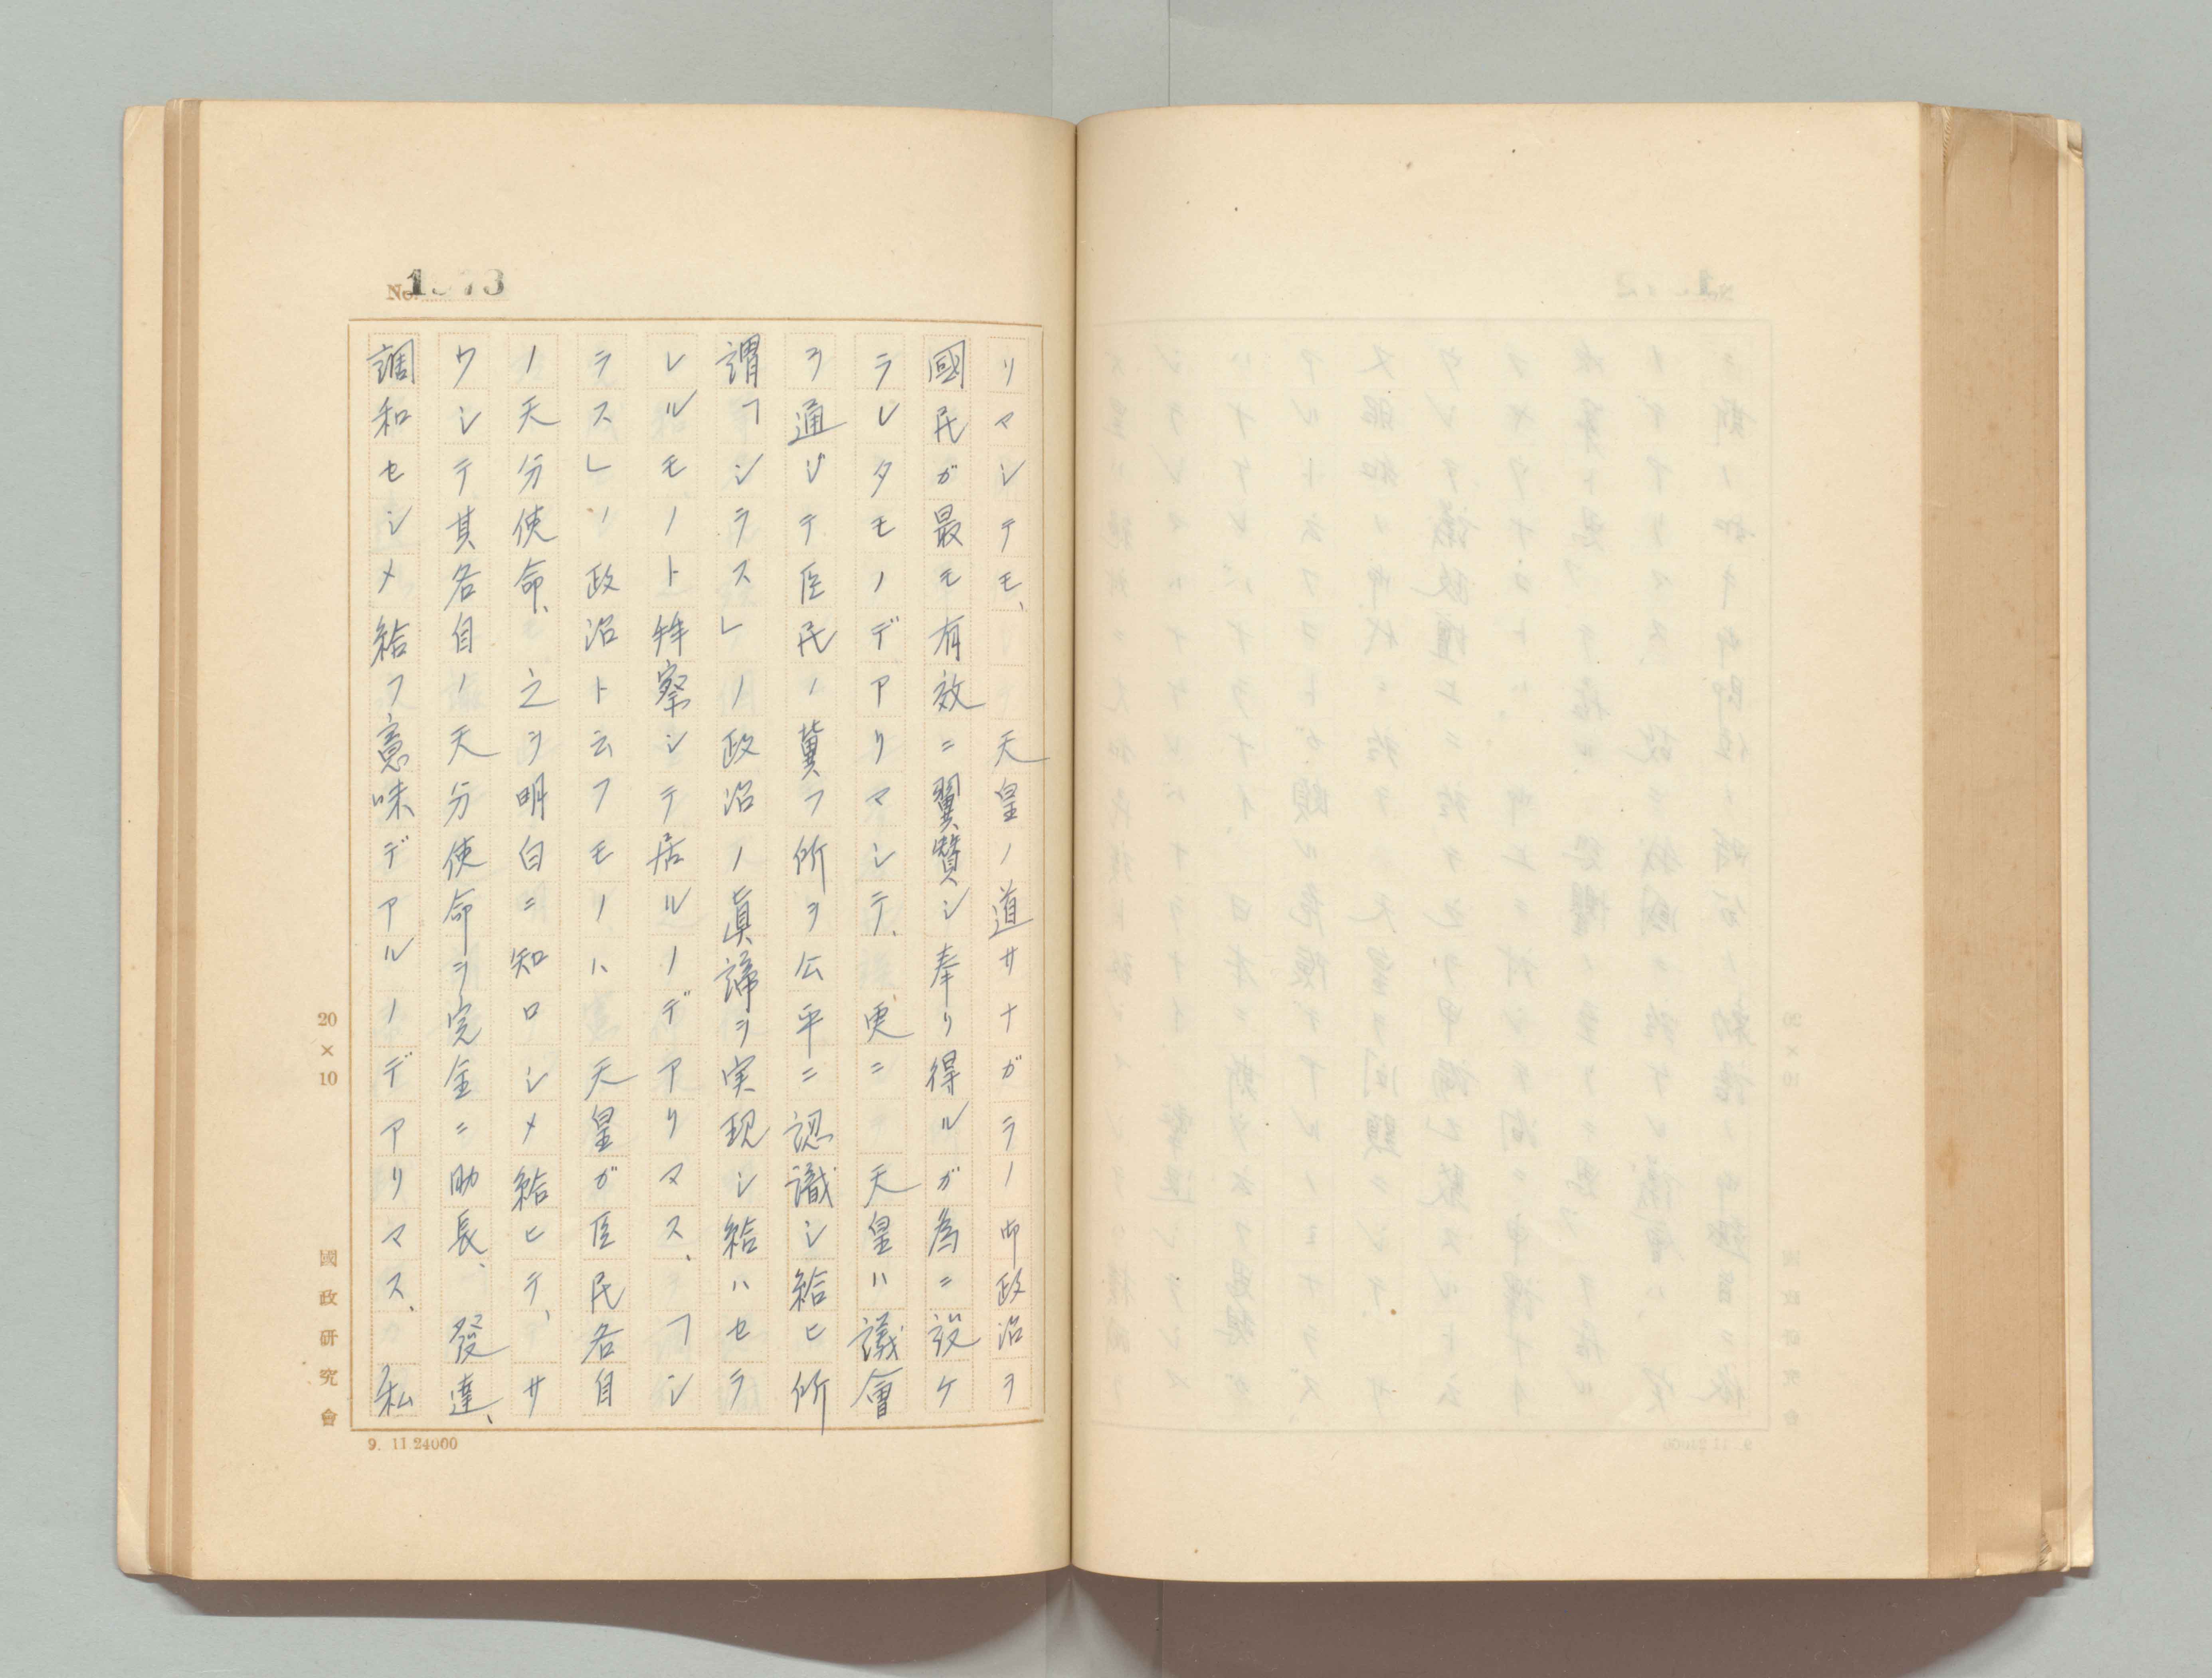 No. 1973
リマシテモ、 天皇ノ道サナガラノ御政治ヲ
國民ガ最モ有效ニ翼賛シ奉リ得ルガ為ニ設ケ
ラレタモノデアリマシテ、更ニ 天皇ハ議會
ヲ通ジテ臣民ノ冀フ所ヲ公平ニ認識シ給ヒ所
謂「シラス」ノ政治ノ眞諦ヲ実現シ給ハセラ
レルモノト拝察シテ居ルノデアリマス、「シ
ラス」ノ政治ト云フモノハ、天皇ガ臣民各自
ノ天分使命、之ヲ明白ニ知ロシメ給ヒテ、サ
ウシテ其各自ノ天分使命ヲ完全ニ助長、發達、
調和セシメ給フ意味デアルノデアリマス、私
20×10
國政研究會
9. 11 24000